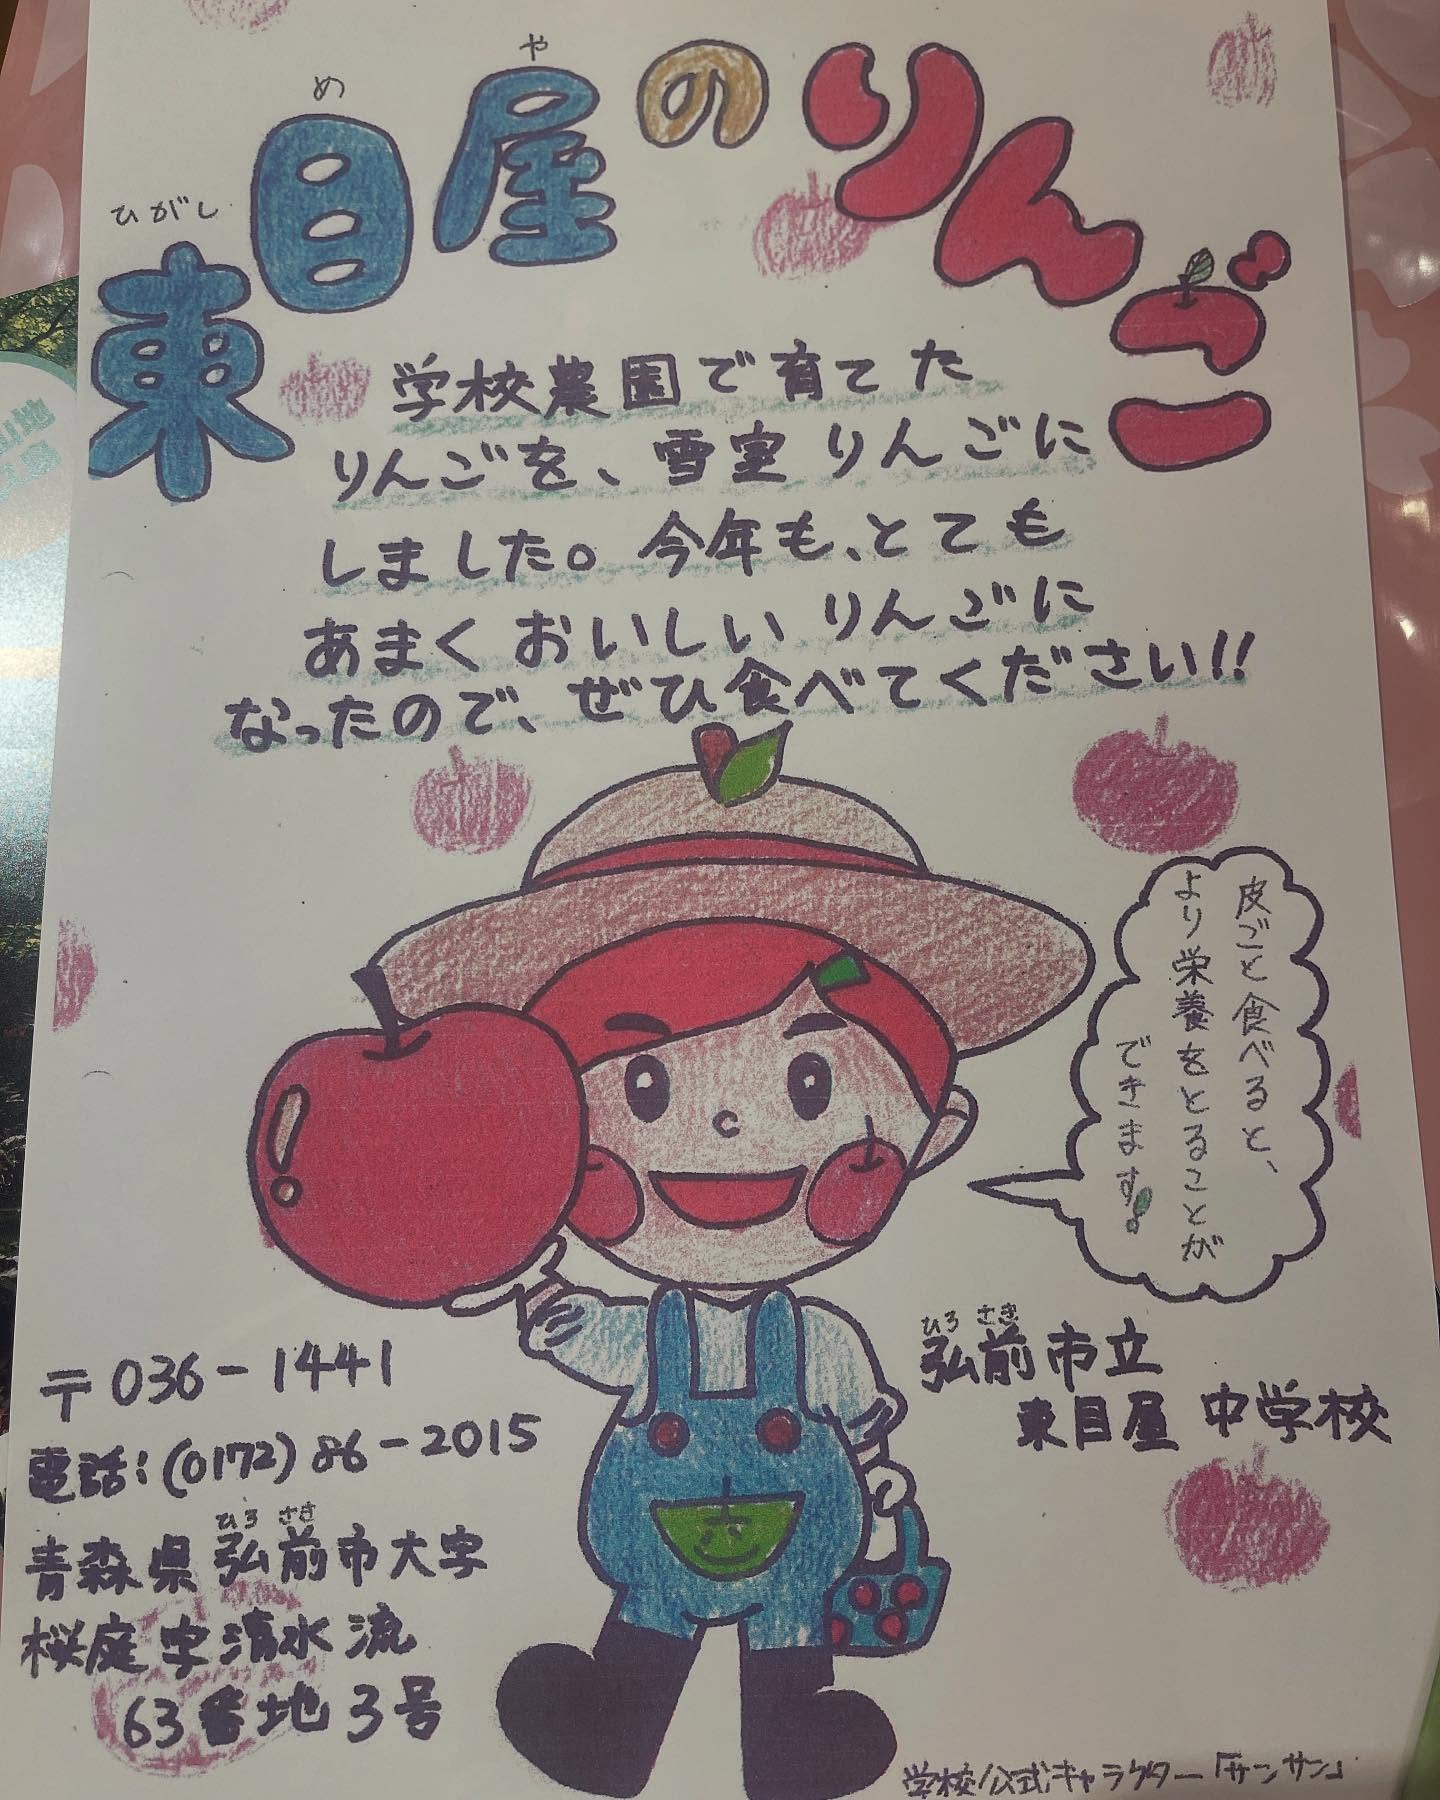 東目屋のりんご
ひがし
め
や
学校農園で育てた
りんごを、雪室りんごに
しました。今年も、とても
あまくおいしいりんごに
なったので、ぜひ食べてください!!
皮ごと食べると、
より栄養をとることが
できます。
ひろさき
弘前市立
東目屋中学校
〒036-1441
電話:(0172)86-2015
ひろさき
青森県弘前市大字
桜庭字清水流
63番地3号
学校公式キャラクター「サンサン」